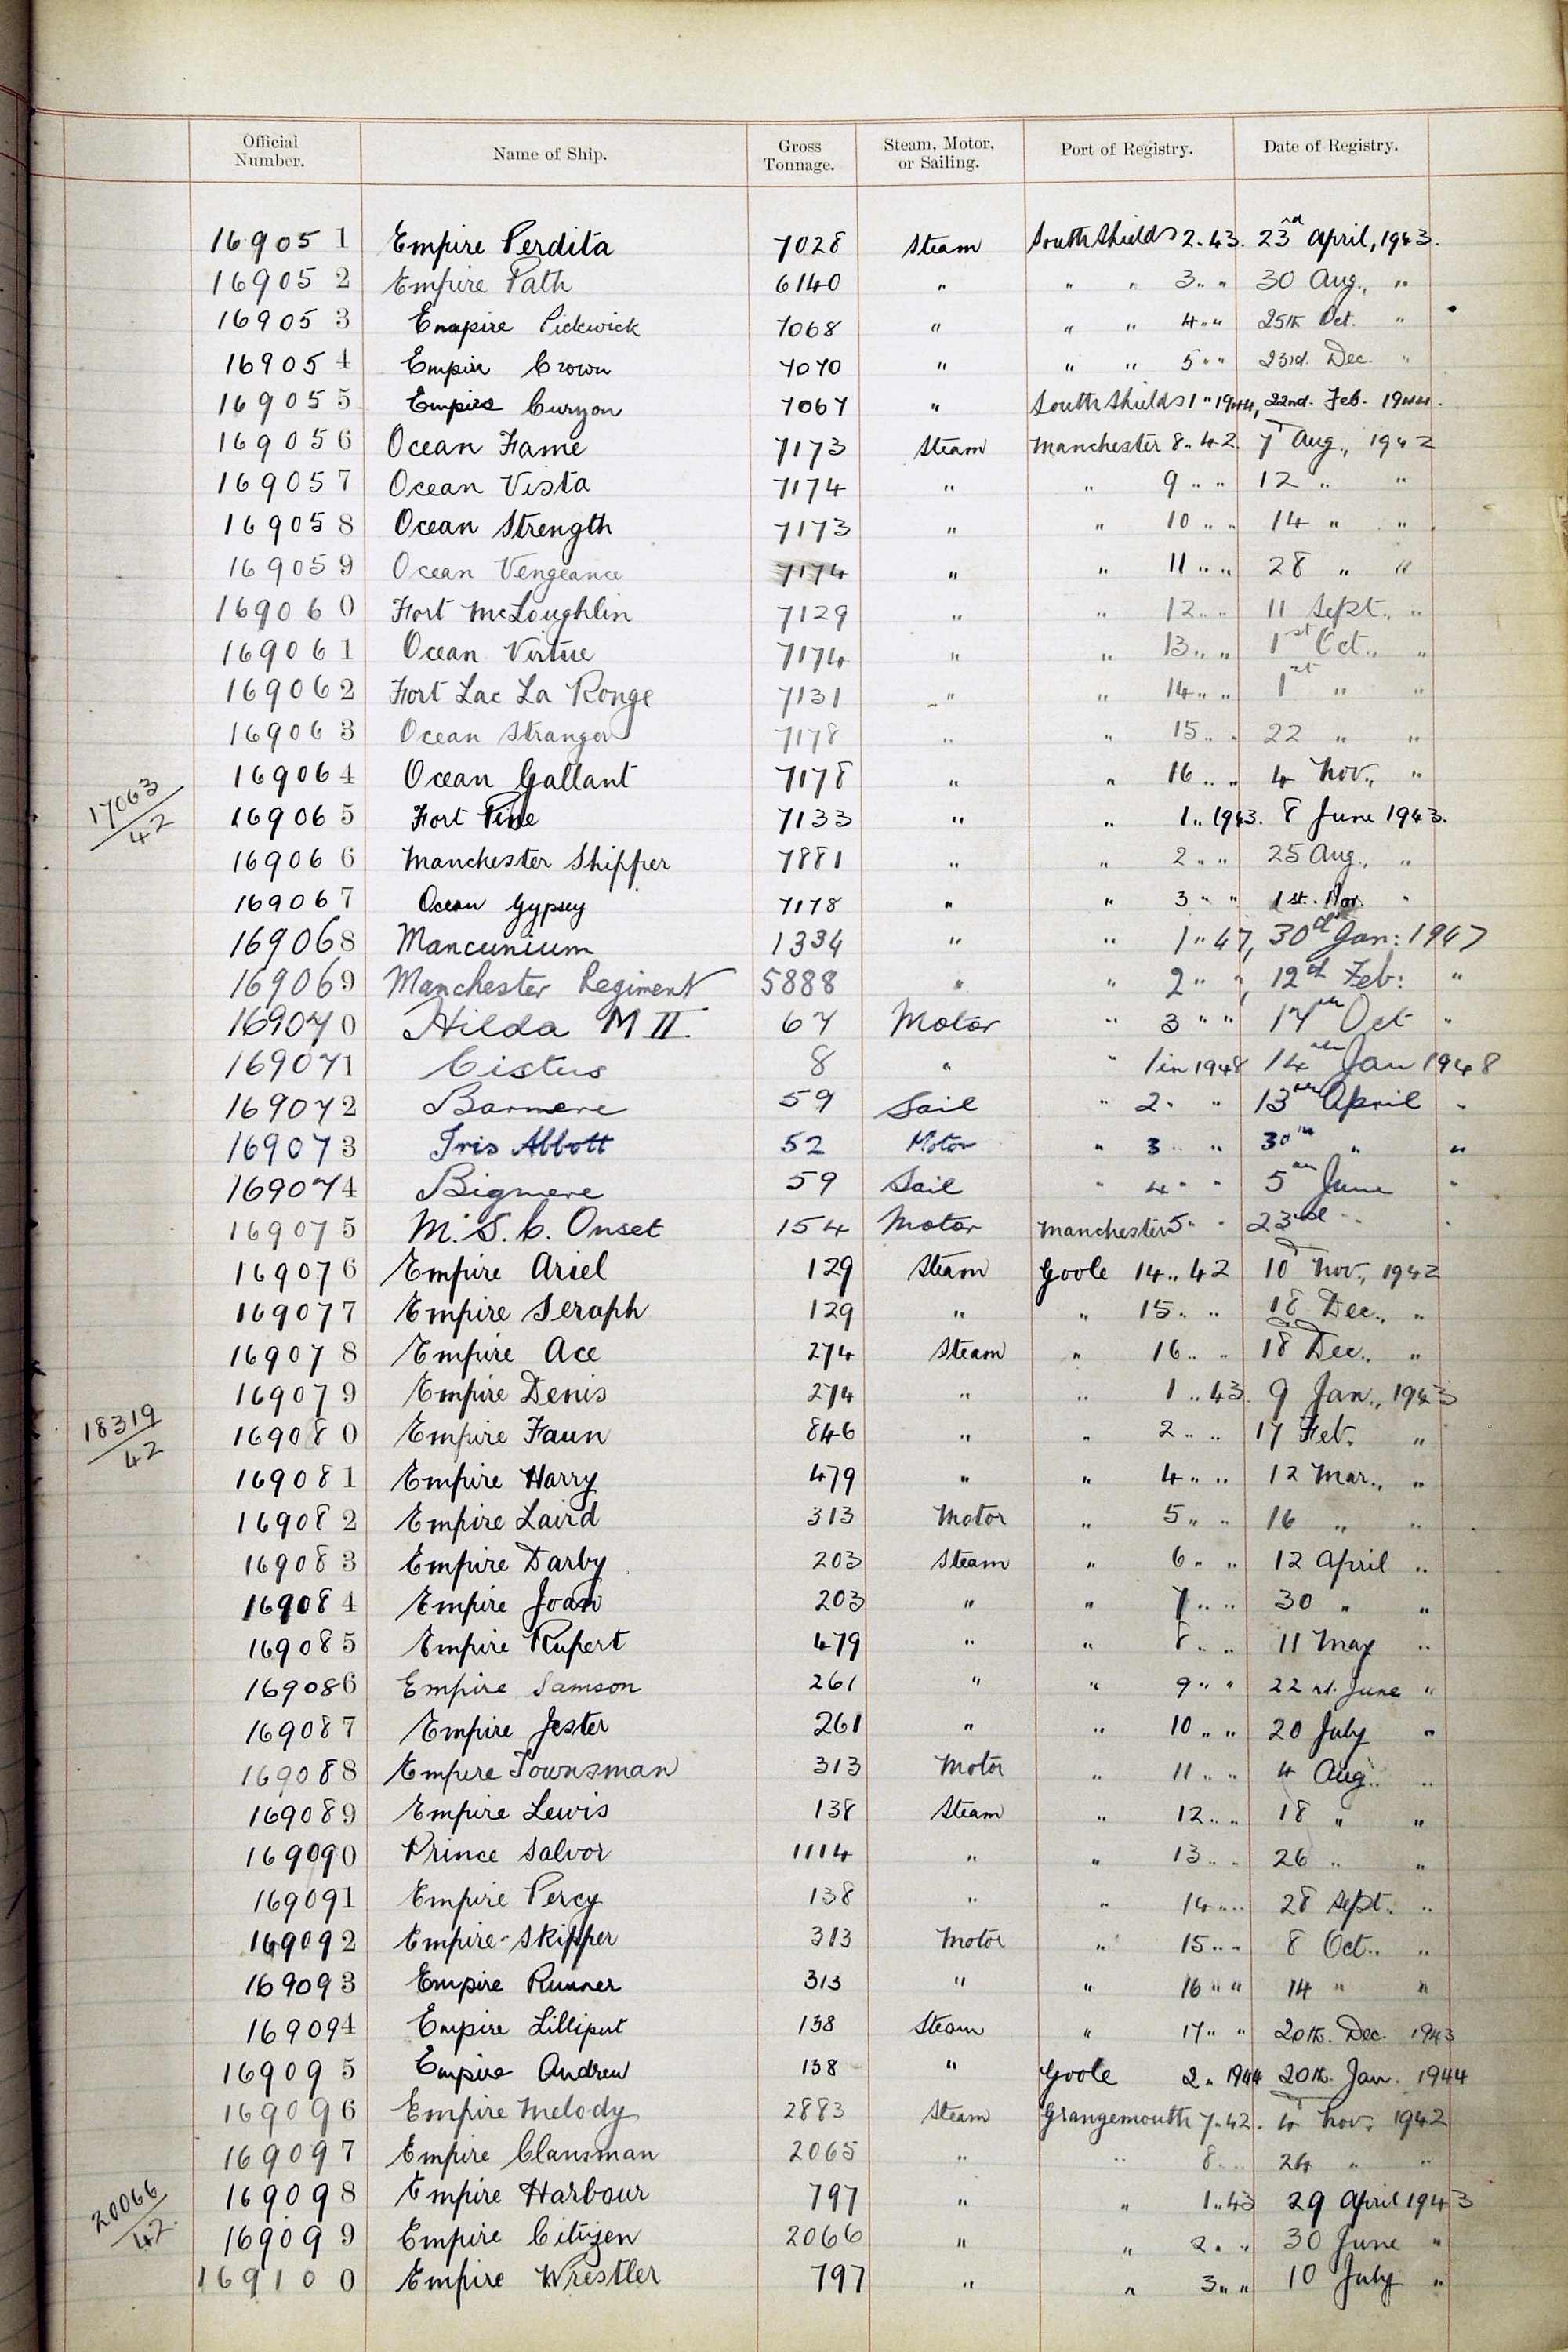 Official Number. Name of Ship. Gross Tonnage. Steam, Motor, or Sailing. Port of Registry. Date of Registry.
169051 Empire Perdita 7028 Steam South Shields 2.43. 23rd April, 1943.
169052 Empire Path 6140 " " " 3 " " 30 Aug., "
169053 Empire Pickwick 7068 " " " 4 " " 25th Oct. "
169054 Empire Crown 7070 " " " 5 " " 23rd. Dec. "
169055 Empire Curzon 7067 " South Shields 1 " 1944, 22nd. Feb. 1944.
169056 Ocean Fame 7173 Steam Manchester 8 " 42. 7 Aug., 1942
169057 Ocean Vista 7174 " " 9 " " 12 " "
169058 Ocean Strength 7173 " " 10 " " 14 " "
169059 Ocean Vengeance 7174 " " 11 " " 28 " "
169060 Fort McLoughlin 7129 " " 12 " " 11 Sept., "
169061 Ocean Virtue 7174 " " 13 " " 1st Oct., "
169062 Fort Lac La Ronge 7131 " " 14 " " 1st " "
169063 Ocean Stranger 7178 " " 15 " " 22 " "
169064 Ocean Gallant 7178 " " 16 " " 4 Nov., "
17063/42
169065 Fort Pine 7133 " " 1 " 1943. 8 June 1943.
169066 Manchester Shipper 7881 " " 2 " " 25 Aug., "
169067 Ocean Gypsey 7178 " " 3 " " 1st. Nov. "
169068 Mancunium 1334 " " 1 " 47, 30th Jan: 1947
169069 Manchester Regiment 5888 " " 2 " " 12th Feb: "
169070 Hilda M II. 67 Motor " 3 " " 17th Oct "
169071 Cistus 8 " " 1 in 1948 14th Jan 1948
169072 Barmere 59 Sail " 2 " " 13th April "
169073 Iris Abbott 52 Motor " 3 " " 30th " "
169074 Bigmere 59 Sail " 4 " " 5th June "
169075 M.S.C. Onset 154 Motor Manchester 5 " " 23rd " "
169076 Empire Ariel 129 Steam Goole 14 " 42 10 Nov., 1942
169077 Empire Seraph 129 " " 15 " " 18 Dec., "
169078 Empire Ace 274 Steam " 16 " " 18 Dec., "
169079 Empire Denis 274 " " 1 " 43. 9 Jan., 1943
18319/42
169080 Empire Faun 846 " " 2 " " 17 Feb. "
169081 Empire Harry 479 " " 4 " " 12 Mar., "
169082 Empire Laird 313 Motor " 5 " " 16 " "
169083 Empire Darby 203 Steam " 6 " " 12 April "
169084 Empire Joan 203 " " 7 " " 30 " "
169085 Empire Rupert 479 " " 8 " " 11 May "
169086 Empire Samson 261 " " 9 " " 22nd. June "
169087 Empire Jester 261 " " 10 " " 20 July "
169088 Empire Townsman 313 Motor " 11 " " 4 Aug. "
169089 Empire Lewis 138 Steam " 12 " " 18 " "
169090 Prince Salvor 1114 " " 13 " " 26 " "
169091 Empire Percy 138 " " 14 " " 28 Sept. "
169092 Empire Skipper 313 Motor " 15 " " 8 Oct. "
169093 Empire Runner 313 " " 16 " " 14 " "
169094 Empire Lilliput 138 Steam " 17 " " 20th. Dec. 1943
169095 Empire Andrew 138 " Goole 2 " 1944 20th. Jan. 1944
169096 Empire Melody 2883 Steam Grangemouth 7 " 42. 4 Nov., 1942
169097 Empire Clansman 2065 " " 8 " " 24 " "
169098 Empire Harbour 797 " " 1 " 43 29 April 1943
20066/42.
169099 Empire Citizen 2066 " " 2 " " 30 June "
169100 Empire Wrestler 797 " " 3 " " 10 July "